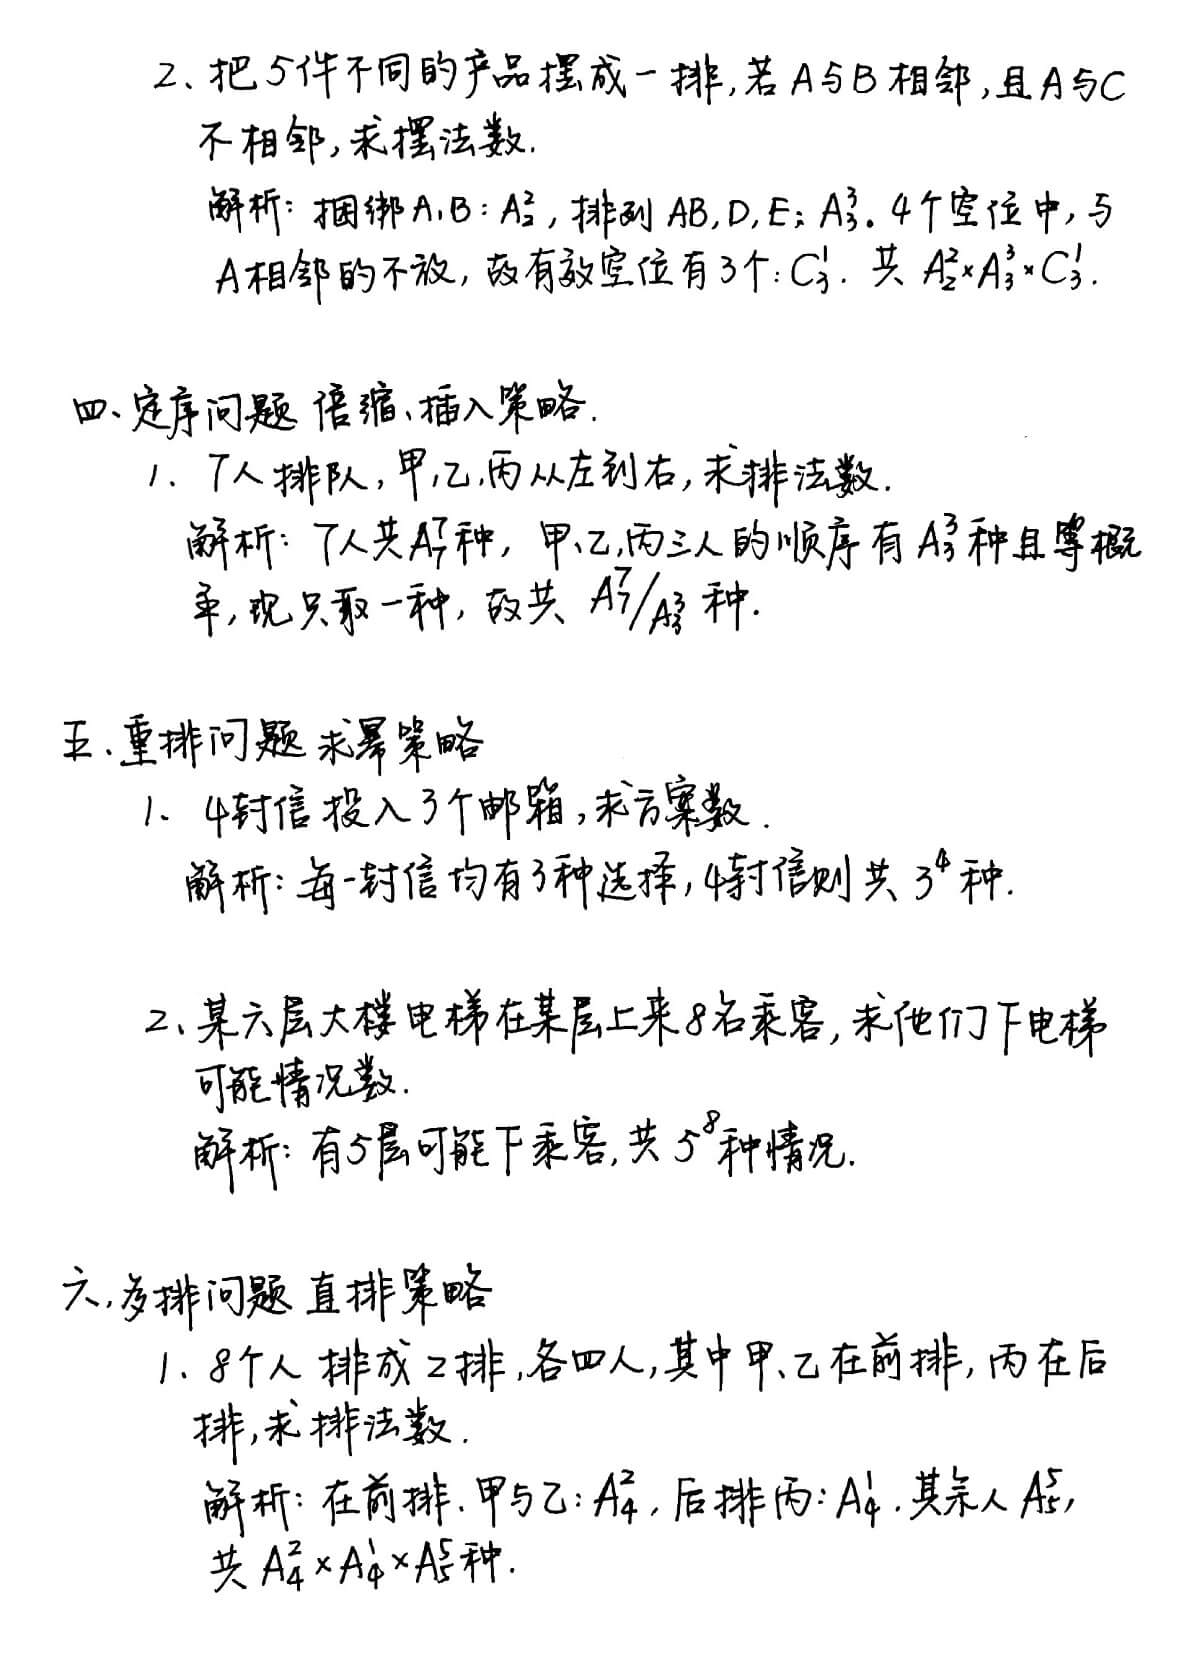 2、把5件不同的产品摆成一排,若A与B相邻,且A与C
不相邻,求摆法数.
解析: 捆绑A、B: A₂², 排列AB,D,E: A₃³. 4个空位中,与
A相邻的不放,故有效空位有3个: C₃¹. 共 A₂²×A₃³×C₃¹.
四、定序问题 倍缩、插入策略.
1. 7人排队,甲,乙,丙从左到右,求排法数.
解析: 7人共A₇⁷种, 甲、乙,丙三人的顺序有A₃³种且等概
率,现只取一种,故共 A₇⁷/A₃³ 种.
五、重排问题 求幂策略
1、4封信投入3个邮箱,求方案数.
解析: 每一封信均有3种选择,4封信则共3⁴种.
2、某六层大楼电梯在某层上来8名乘客,求他们下电梯
可能情况数.
解析: 有5层可能下乘客,共5⁸种情况.
六、多排问题 直排策略
1、8个人排成2排,各四人,其中甲、乙在前排,丙在后
排,求排法数.
解析: 在前排.甲与乙: A₄², 后排丙: A₄¹. 其余人A₅⁵,
共A₄²×A₄¹×A₅⁵种.